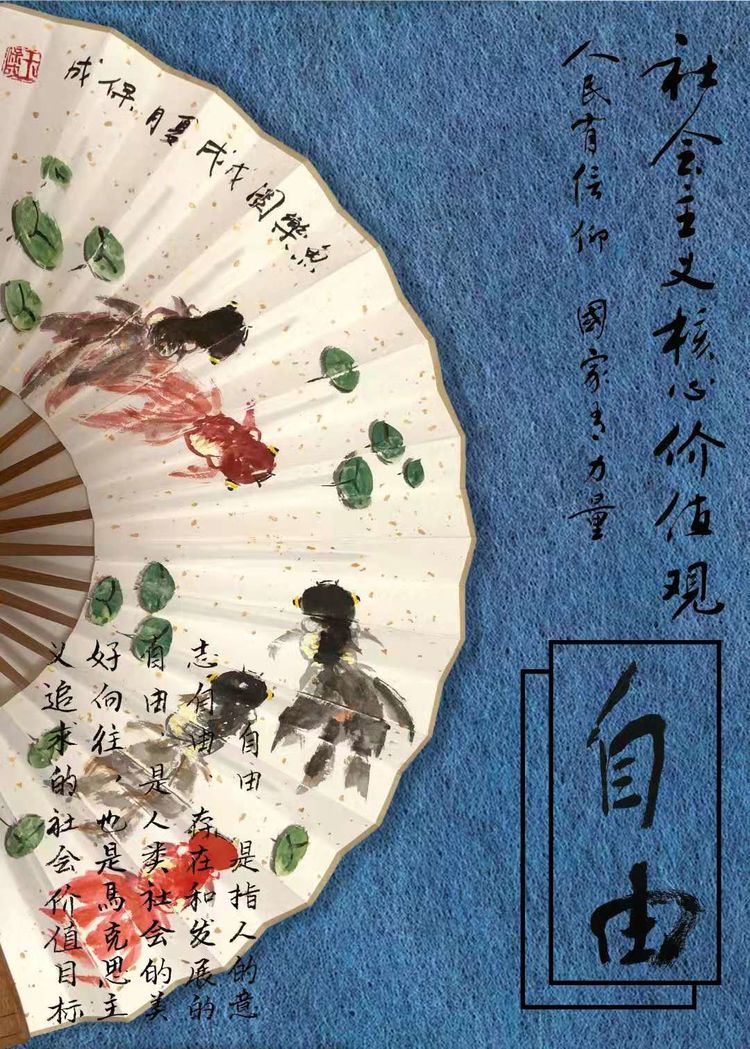 社会主义核心价值观
人民有信仰 國家有力量
自由
魚樂圖戊戌夏月保成
自由 是指人的意
志自由 存在和发展的
自由，是人类社会的美
好向往，也是馬克思主
义追求的社会价值目标